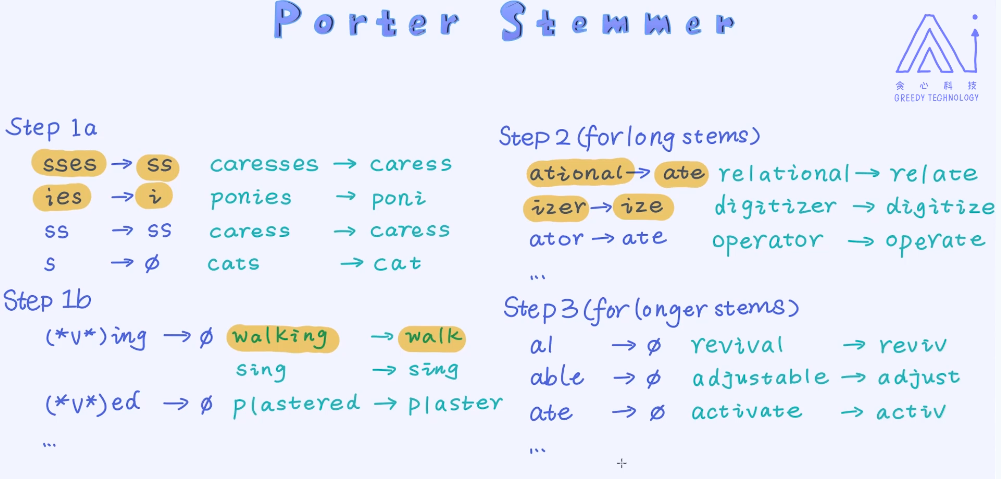 Porter Stemmer
贪心科技
GREEDY TECHNOLOGY
Step 1a
sses → ss caresses → caress
ies → i ponies → poni
ss → ss caress → caress
s → ø cats → cat
Step 1b
(*v*)ing → ø walking → walk
sing → sing
(*v*)ed → ø plastered → plaster
...
Step 2 (for long stems)
ational → ate relational → relate
izer → ize digitizer → digitize
ator → ate operator → operate
...
Step 3 (for longer stems)
al → ø revival → reviv
able → ø adjustable → adjust
ate → ø activate → activ
...